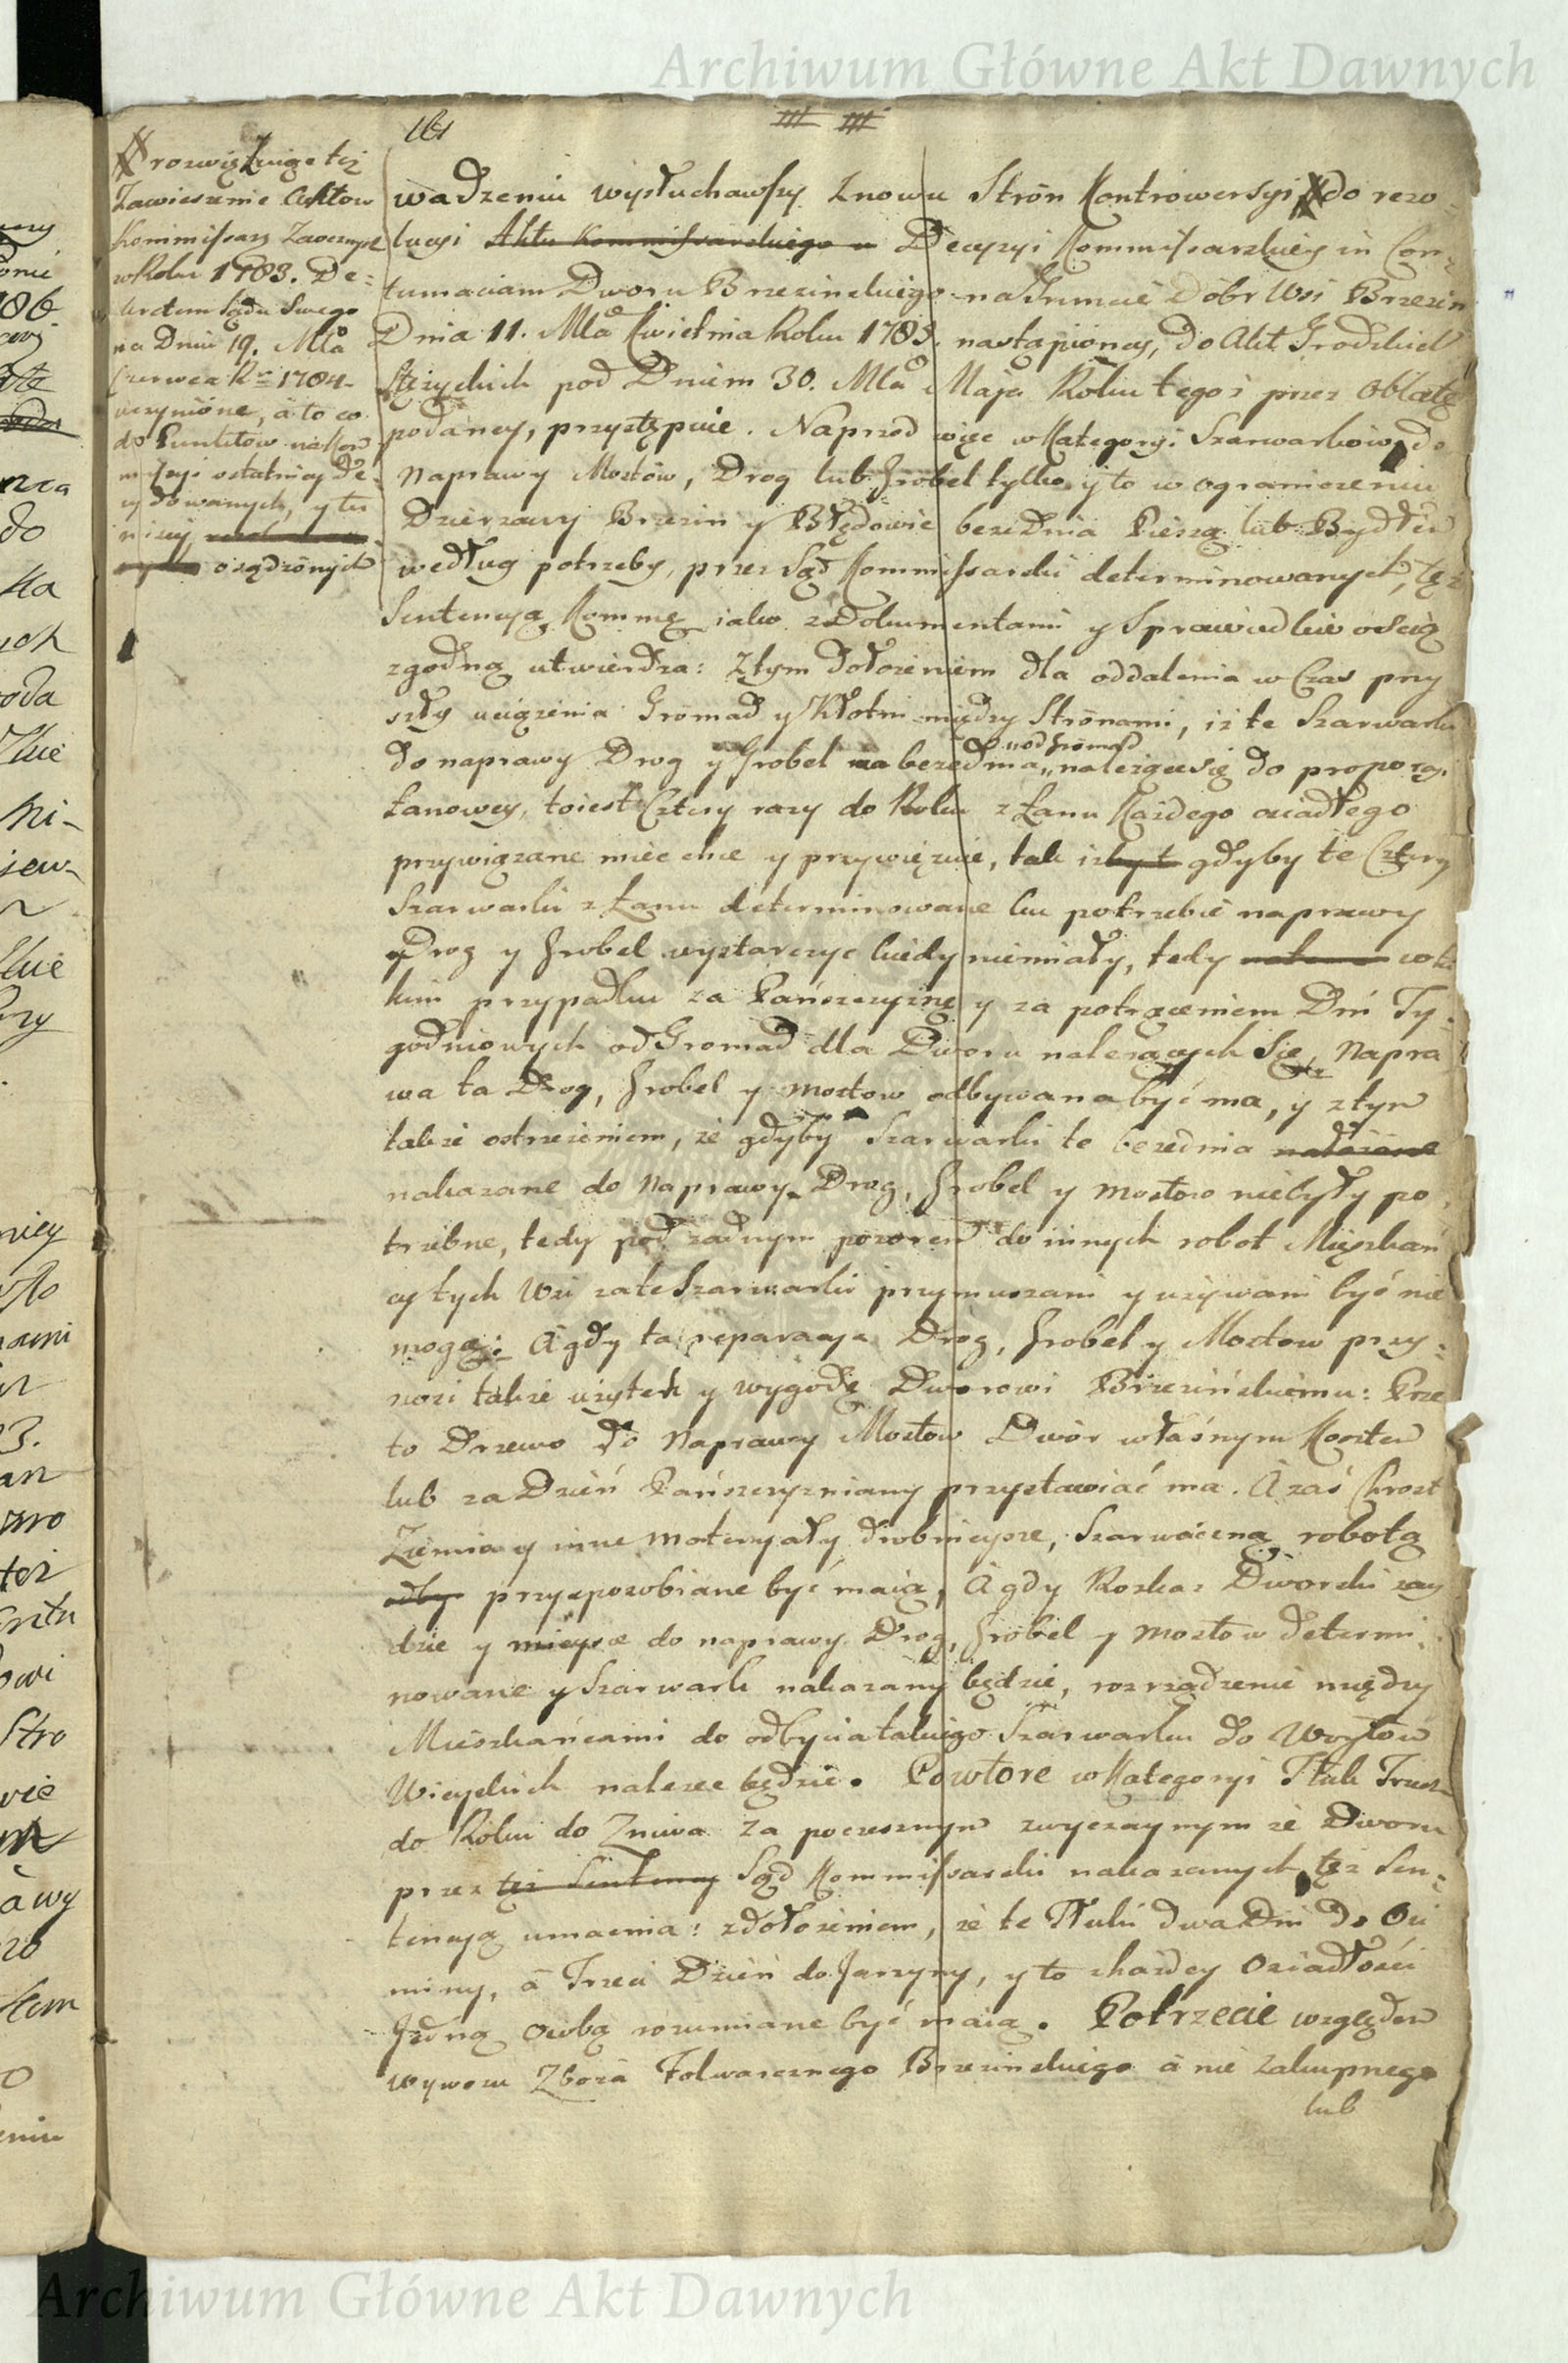 Archiwum Główne Akt Dawnych
rozwięzuiąc też
Zawieszenie Aktow
Kommissarz Zaocznye
w Roku 1783. De-
kretem Sądu Swego
na Dniu 19. Mca
Czerwca R. 1784.
uczynione, á to co
do Punktów na Kom
missyi ostatniey De-
cydowanych, y tu
niżey
osądzonych
wadzeniu wysłuchawszy znowu Strón Kontrowersyi do rezo-
lucyi Aktu Kommissarskiego w Decyzyi Kommissarskiey in Con-
tumaciam Dworu Brzezinskiego na Gruncie Dóbr Wsi Brzezin
Dnia 11. Mca Kwietnia Roku 1783. nastąpioney, do Akt Grodzkich
Stężyckich pod Dniem 30. Mca Maja Roku tegoż przez Oblatę
podaney, przystępuie. Naprzod więc w Kategoryi Szarwarkow do
Naprawy Mostów, Drog lub Grobel tylko y to w ograniczeniu
Dzierzawy Brzezin y Błędowie bezednia Pieszą lub Bydłem
według potrzeby, przez Sąd Kommissarski determinowanych, tęż
Sentencyą Kommą iako z Dokumentami y Sprawiedliwością
zgodną utwierdza: Z tym dołożeniem dla oddalenia w Czas przy
szły uciążenia Gromad y Kłotni między Stronami, iż te Szarwarki
od Gromad
do naprawy Drog y Grobel na bezednia należące się do proporcyi
Łanowey, to iest Cztery razy do Roku z Łanu Każdego osiadłego
przywiązane mieć chce y przywięzuie, tak iż gdyby te Cztery
Szarwarki z Łanu determinowane ku potrzebie naprawy
Drog y Grobel wystarczyc kiedy niemiały, tedy w ta
kim przypadku za Pańszczyznę y za potrąceniem Dni Ty-
godniowych od Gromad dla Dworu należących się, Napra
wa ta Drog, Grobel y mostow odbywana być ma, y z tym
takze ostrzeżeniem, że gdyby Szarwarki te bezednia
nakazane do Naprawy Drog, Grobel y mostow niebyły po-
trzebne, tedy pod żadnym pozorem do innych robot Mieszkań
cy tych Wsi za te Szarwarki przymuszani y używani być nie
mogą: A gdy ta reparacya Dróg, Grobel y Mostow przy-
nosi także użytek y wygodę Dworowi Brzezińskiemu: Prze
to Drzewo do Naprawy Mostow Dwór własnym Kosztem
lub za Dzień Pańszczyzniany przystawiać ma. A zaś Chrost
Ziemia y inne materyały drobnieysze, Szarwáczną robotą
przysposobiane być maią, A gdy Rozkaz Dworski zay
dzie y mieysce do naprawy Drog, Grobel y mostow determi-
nowane y Szarwark nakazany będzie, rozrządzenie między
Mieszkańcami do odbycia takiego Szarwarku do Woytow
Wieyskich należec będzie. Powtore w Kategoryi Tłuk Trzech
do Roku do Zniwa za poczesnym zwyczaynym ze Dworu
przez też Sentencyą Sąd Kommissarski nakazanych, tęż Sen-
tencyą umacnia: z dołożeniem, że te Tłuki dwa Dni do Ozi
miny, á Trzeci Dzień do Jarzyny, y to z każdey Osiadłości
Jedną Osobą rozumiane być maią. Potrzecie względem
wywozu Zboża Folwarcznego Brzezinskiego á nie Zakupnego
lub
Archiwum Główne Akt Dawnych